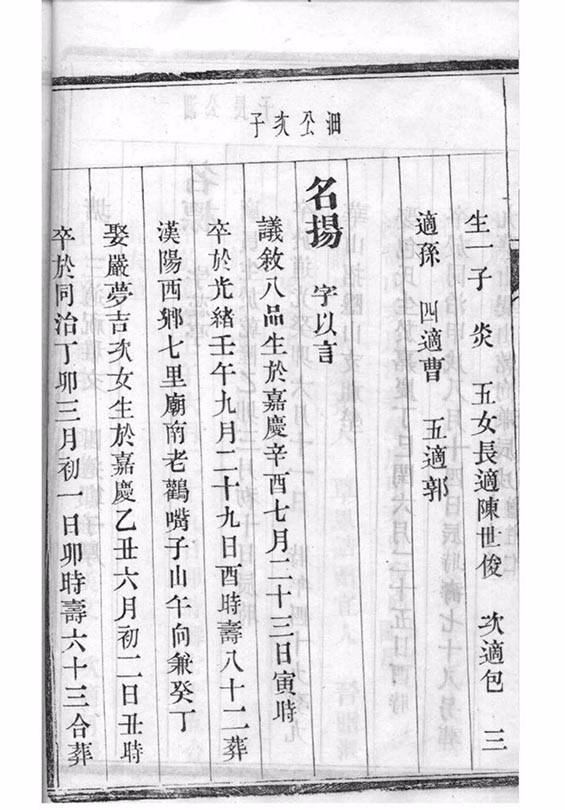 泗公次子
生一子 炎 五女長適陳世俊 次適包 三
適孫 四適曹 五適郭
名揚 字以言
議敘八品生於嘉慶辛酉七月二十三日寅時
卒於光緒壬午九月二十九日酉時壽八十二葬
漢陽西鄉七里廟南老鸛嘴子山午向兼癸丁
娶嚴夢吉次女生於嘉慶乙丑六月初二日丑時
卒於同治丁卯三月初一日卯時壽六十三合葬